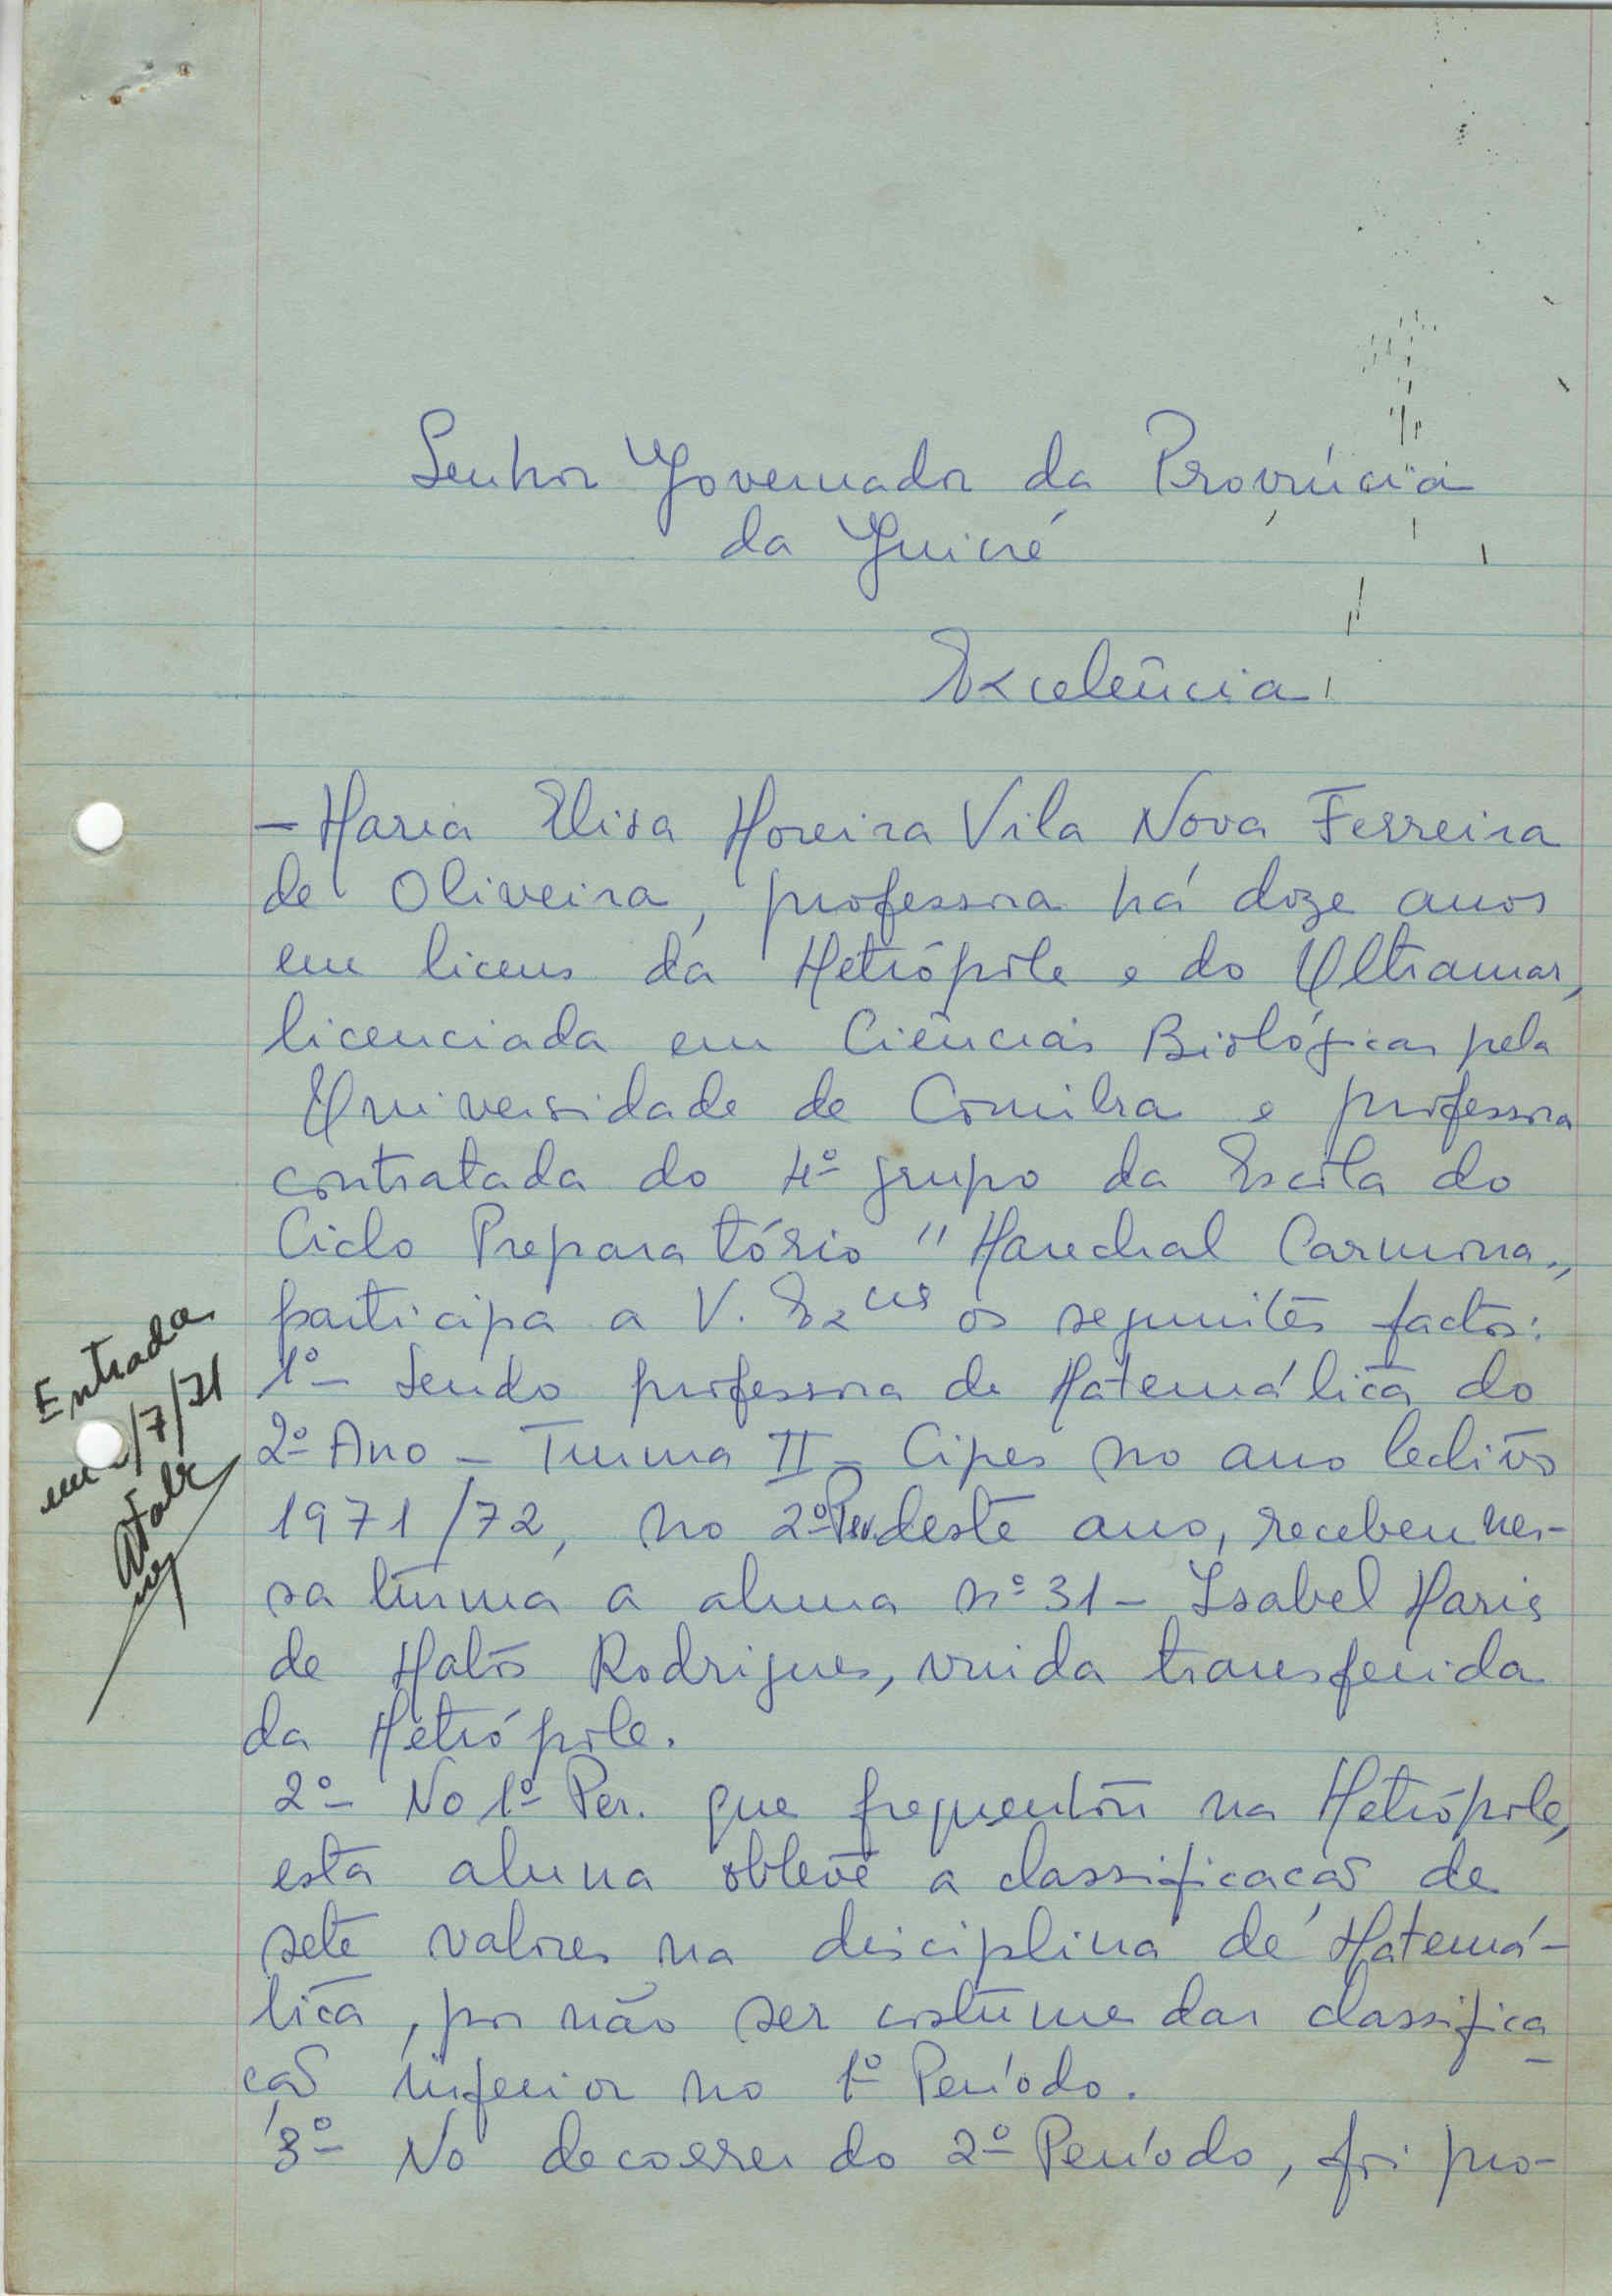 Senhor Governador da Província
da Guiné
Excelência
- Maria Elisa Moreira Vila Nova Ferreira
de Oliveira, professora há doze anos
em liceus da Metrópole e do Ultramar,
licenciada em Ciências Biológicas pela
Universidade de Coimbra e professora
contratada do 4º grupo da Escola do
Ciclo Preparatório "Marechal Carmona"
participa a V. Ex cia os seguintes factos:
1º - Sendo professora de Matemática do
2º Ano - Turma II - Cipes no ano lectivo
1971/72, no 2º Per. deste ano, recebeu nes-
sa turma a aluna nº 31 - Isabel Maria
de Matos Rodrigues, vinda transferida
da Metrópole.
2º - No 1º Per. que frequentou na Metrópole,
esta aluna obteve a classificação de
sete valores na disciplina de Matemá-
tica, por não ser costume dar classifica-
ção inferior no 1º Período.
3º - No decorrer do 2º Período, foi pro-
Entrada
em /7/71